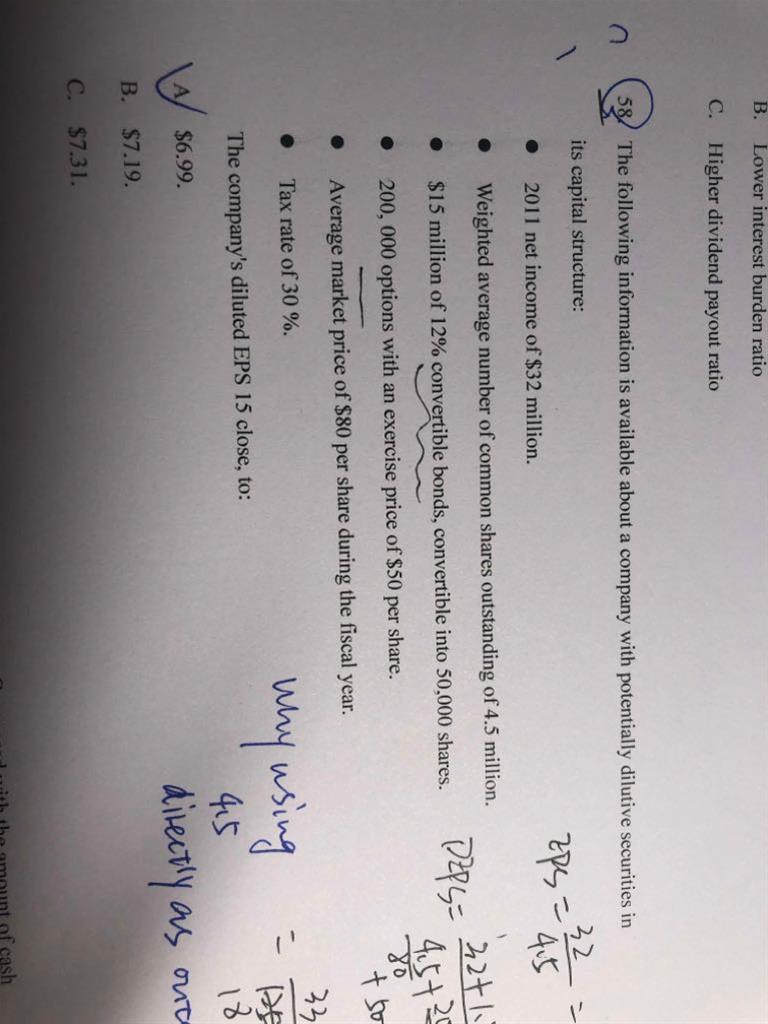 B. Lower interest burden ratio
C. Higher dividend payout ratio
58. The following information is available about a company with potentially dilutive securities in
its capital structure:
● 2011 net income of $32 million.
● Weighted average number of common shares outstanding of 4.5 million.
● $15 million of 12% convertible bonds, convertible into 50,000 shares.
● 200, 000 options with an exercise price of $50 per share.
● Average market price of $80 per share during the fiscal year.
● Tax rate of 30 %.
The company's diluted EPS 15 close, to:
A $6.99.
B. $7.19.
C. $7.31.
EPS = 32 / 4.5 =
DEPS =
why using
4.5
directly as
with the amount of cash